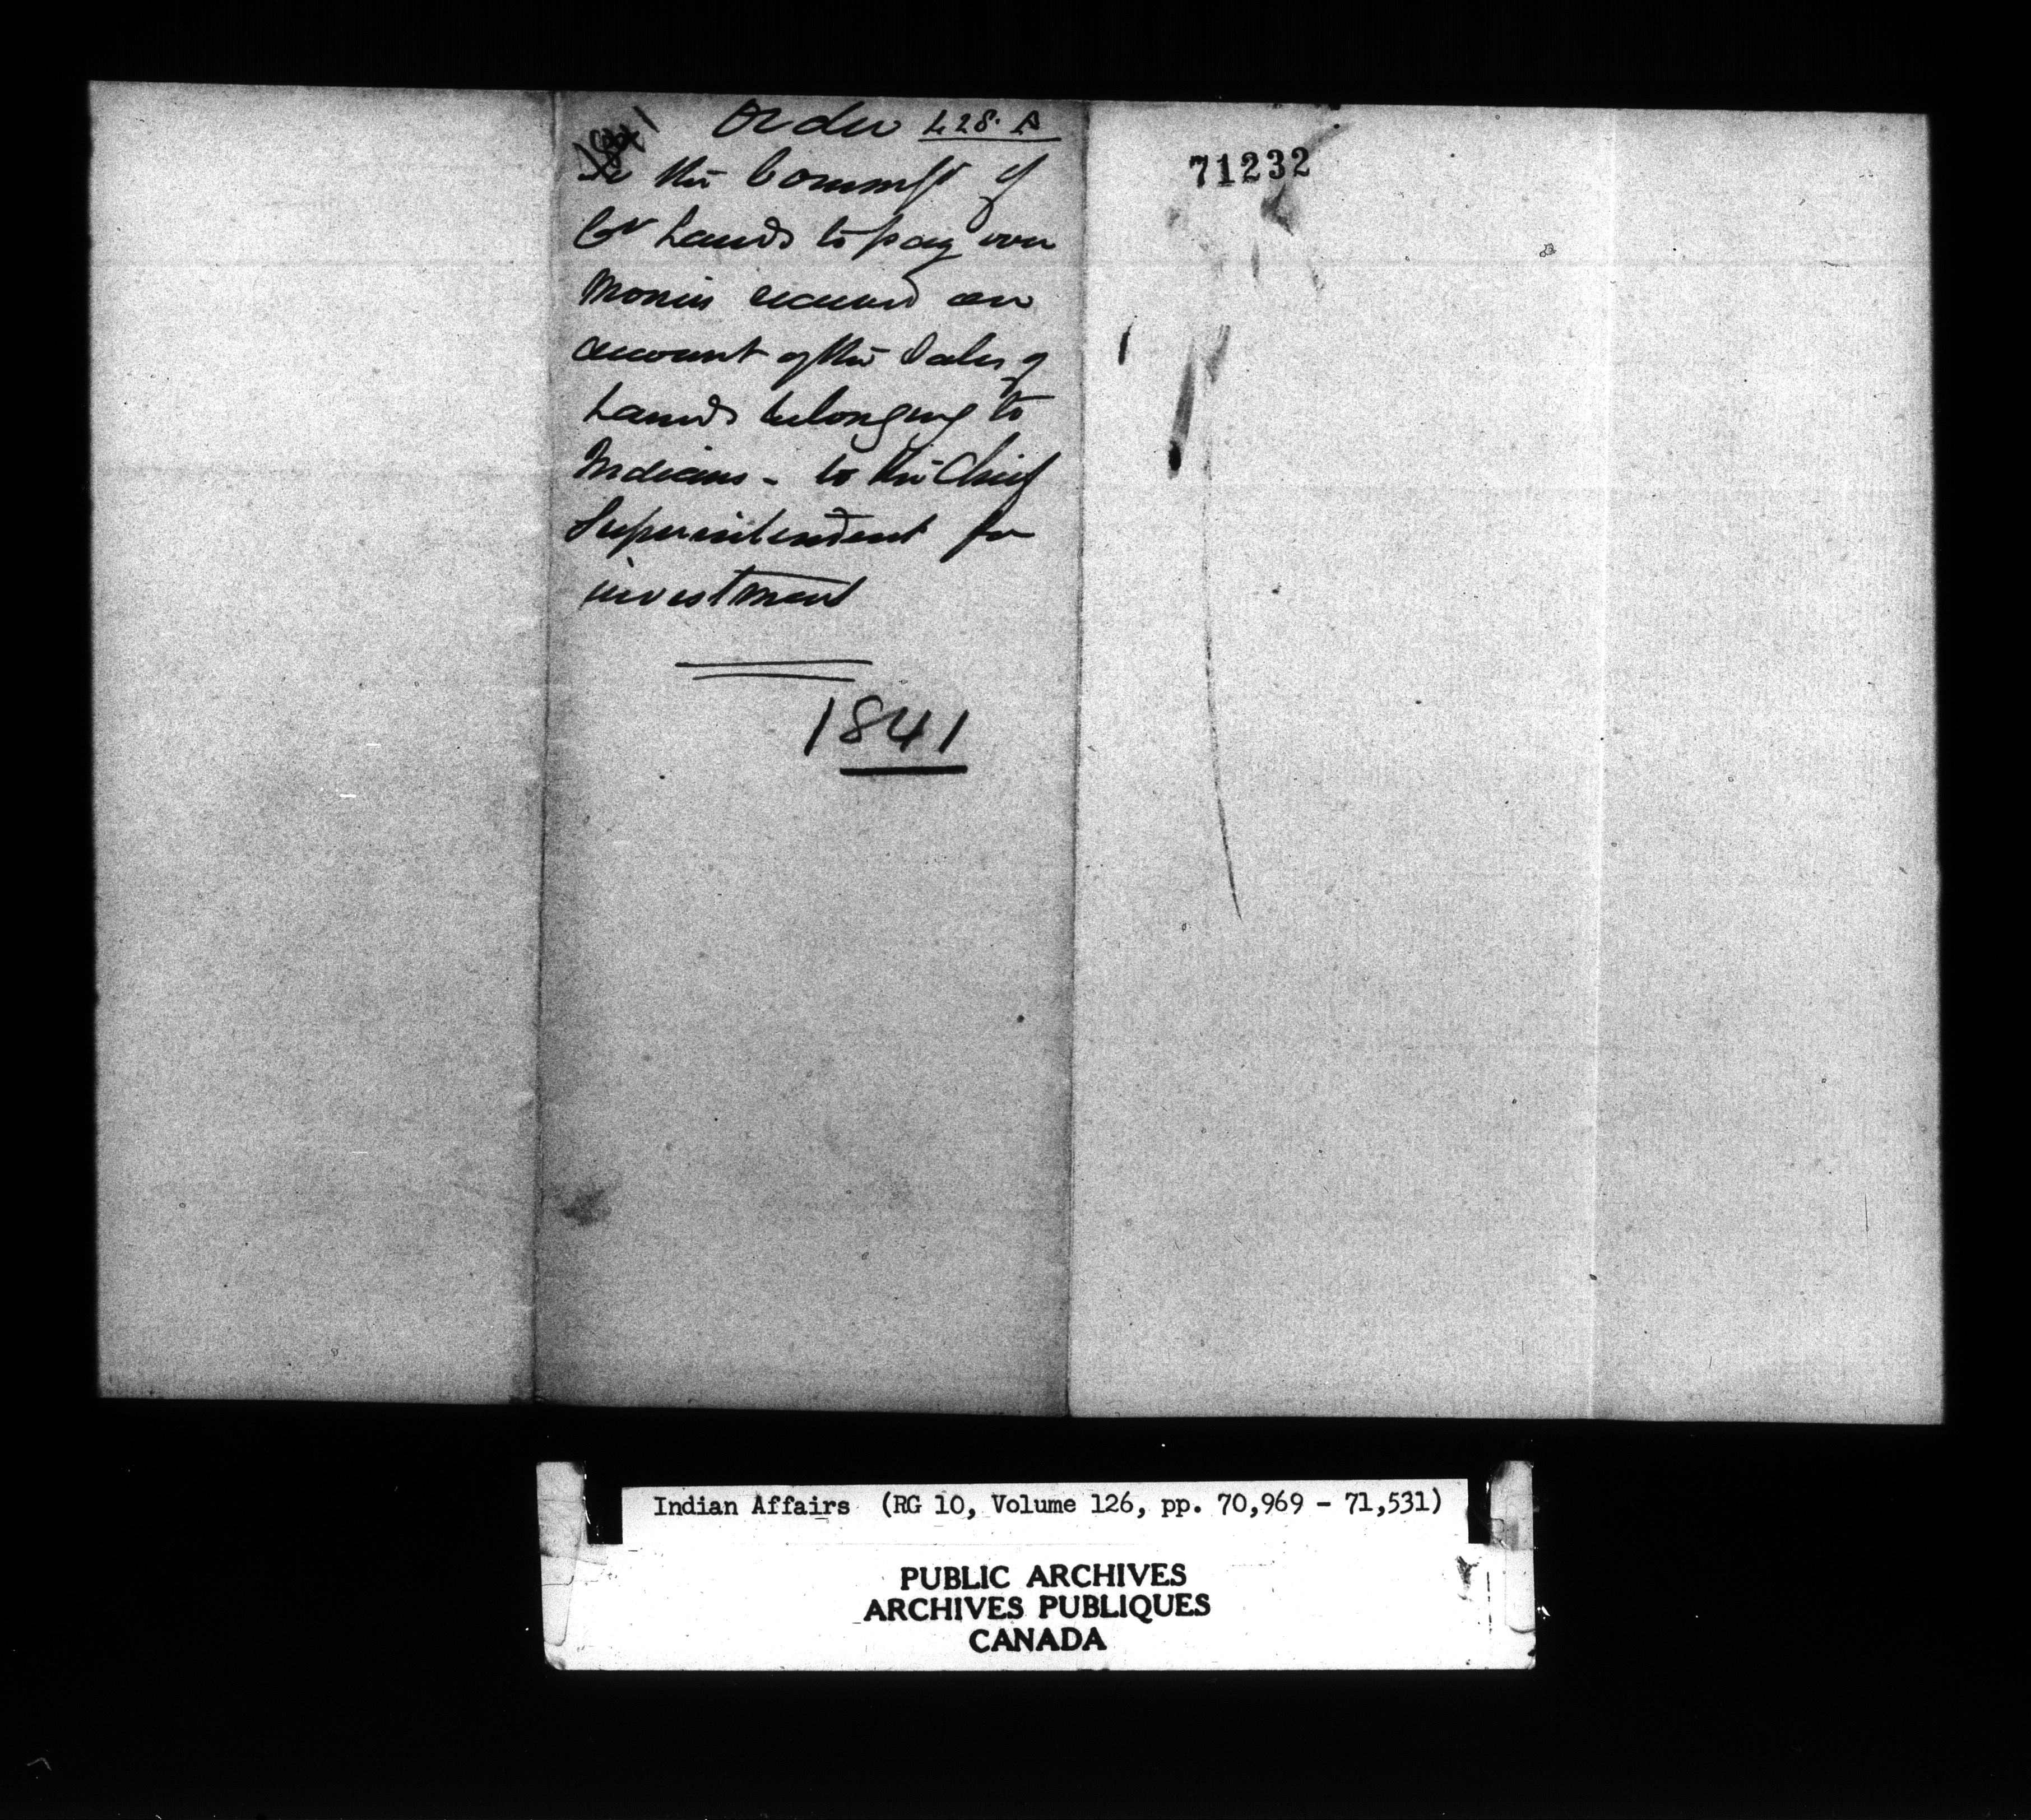 Order L 28. A
1841
To the Commssr of
Cr Lands to pay over
Monies received on
account of the Sales of
Lands belonging to
Indians - to the Chief
Superintendent for
investment
1841
71232
Indian Affairs (RG 10, Volume 126, pp. 70,969 - 71,531)
PUBLIC ARCHIVES
ARCHIVES PUBLIQUES
CANADA